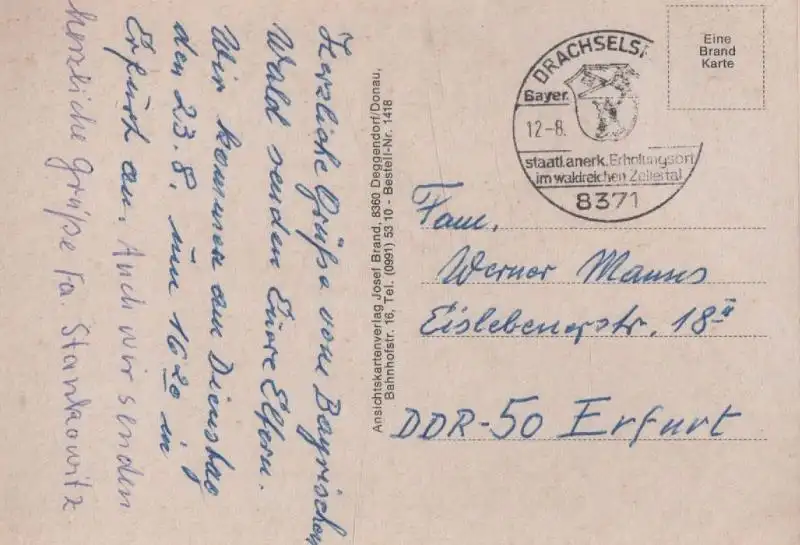 Herzliche Grüße vom Bayrischen
Wald senden Eure Eltern.
Wir kommen am Dienstag
den 23.8. um 16²⁰ in
Erfurt an. Auch wir senden
herzliche Grüße Fa. Stankowitz
Ansichtskartenverlag Josef Brand, 8360 Deggendorf/Donau,
Bahnhofstr. 16, Tel. (0991) 53 10 - Bestell-Nr. 1418
Eine
Brand
Karte
DRACHSELSR
Bayer.
12-8.
staatl. anerk. Erholungsort
im waldreichen Zellertal
8371
Fam.
Werner Manns
Eislebenerstr. 18 II
DDR-50 Erfurt